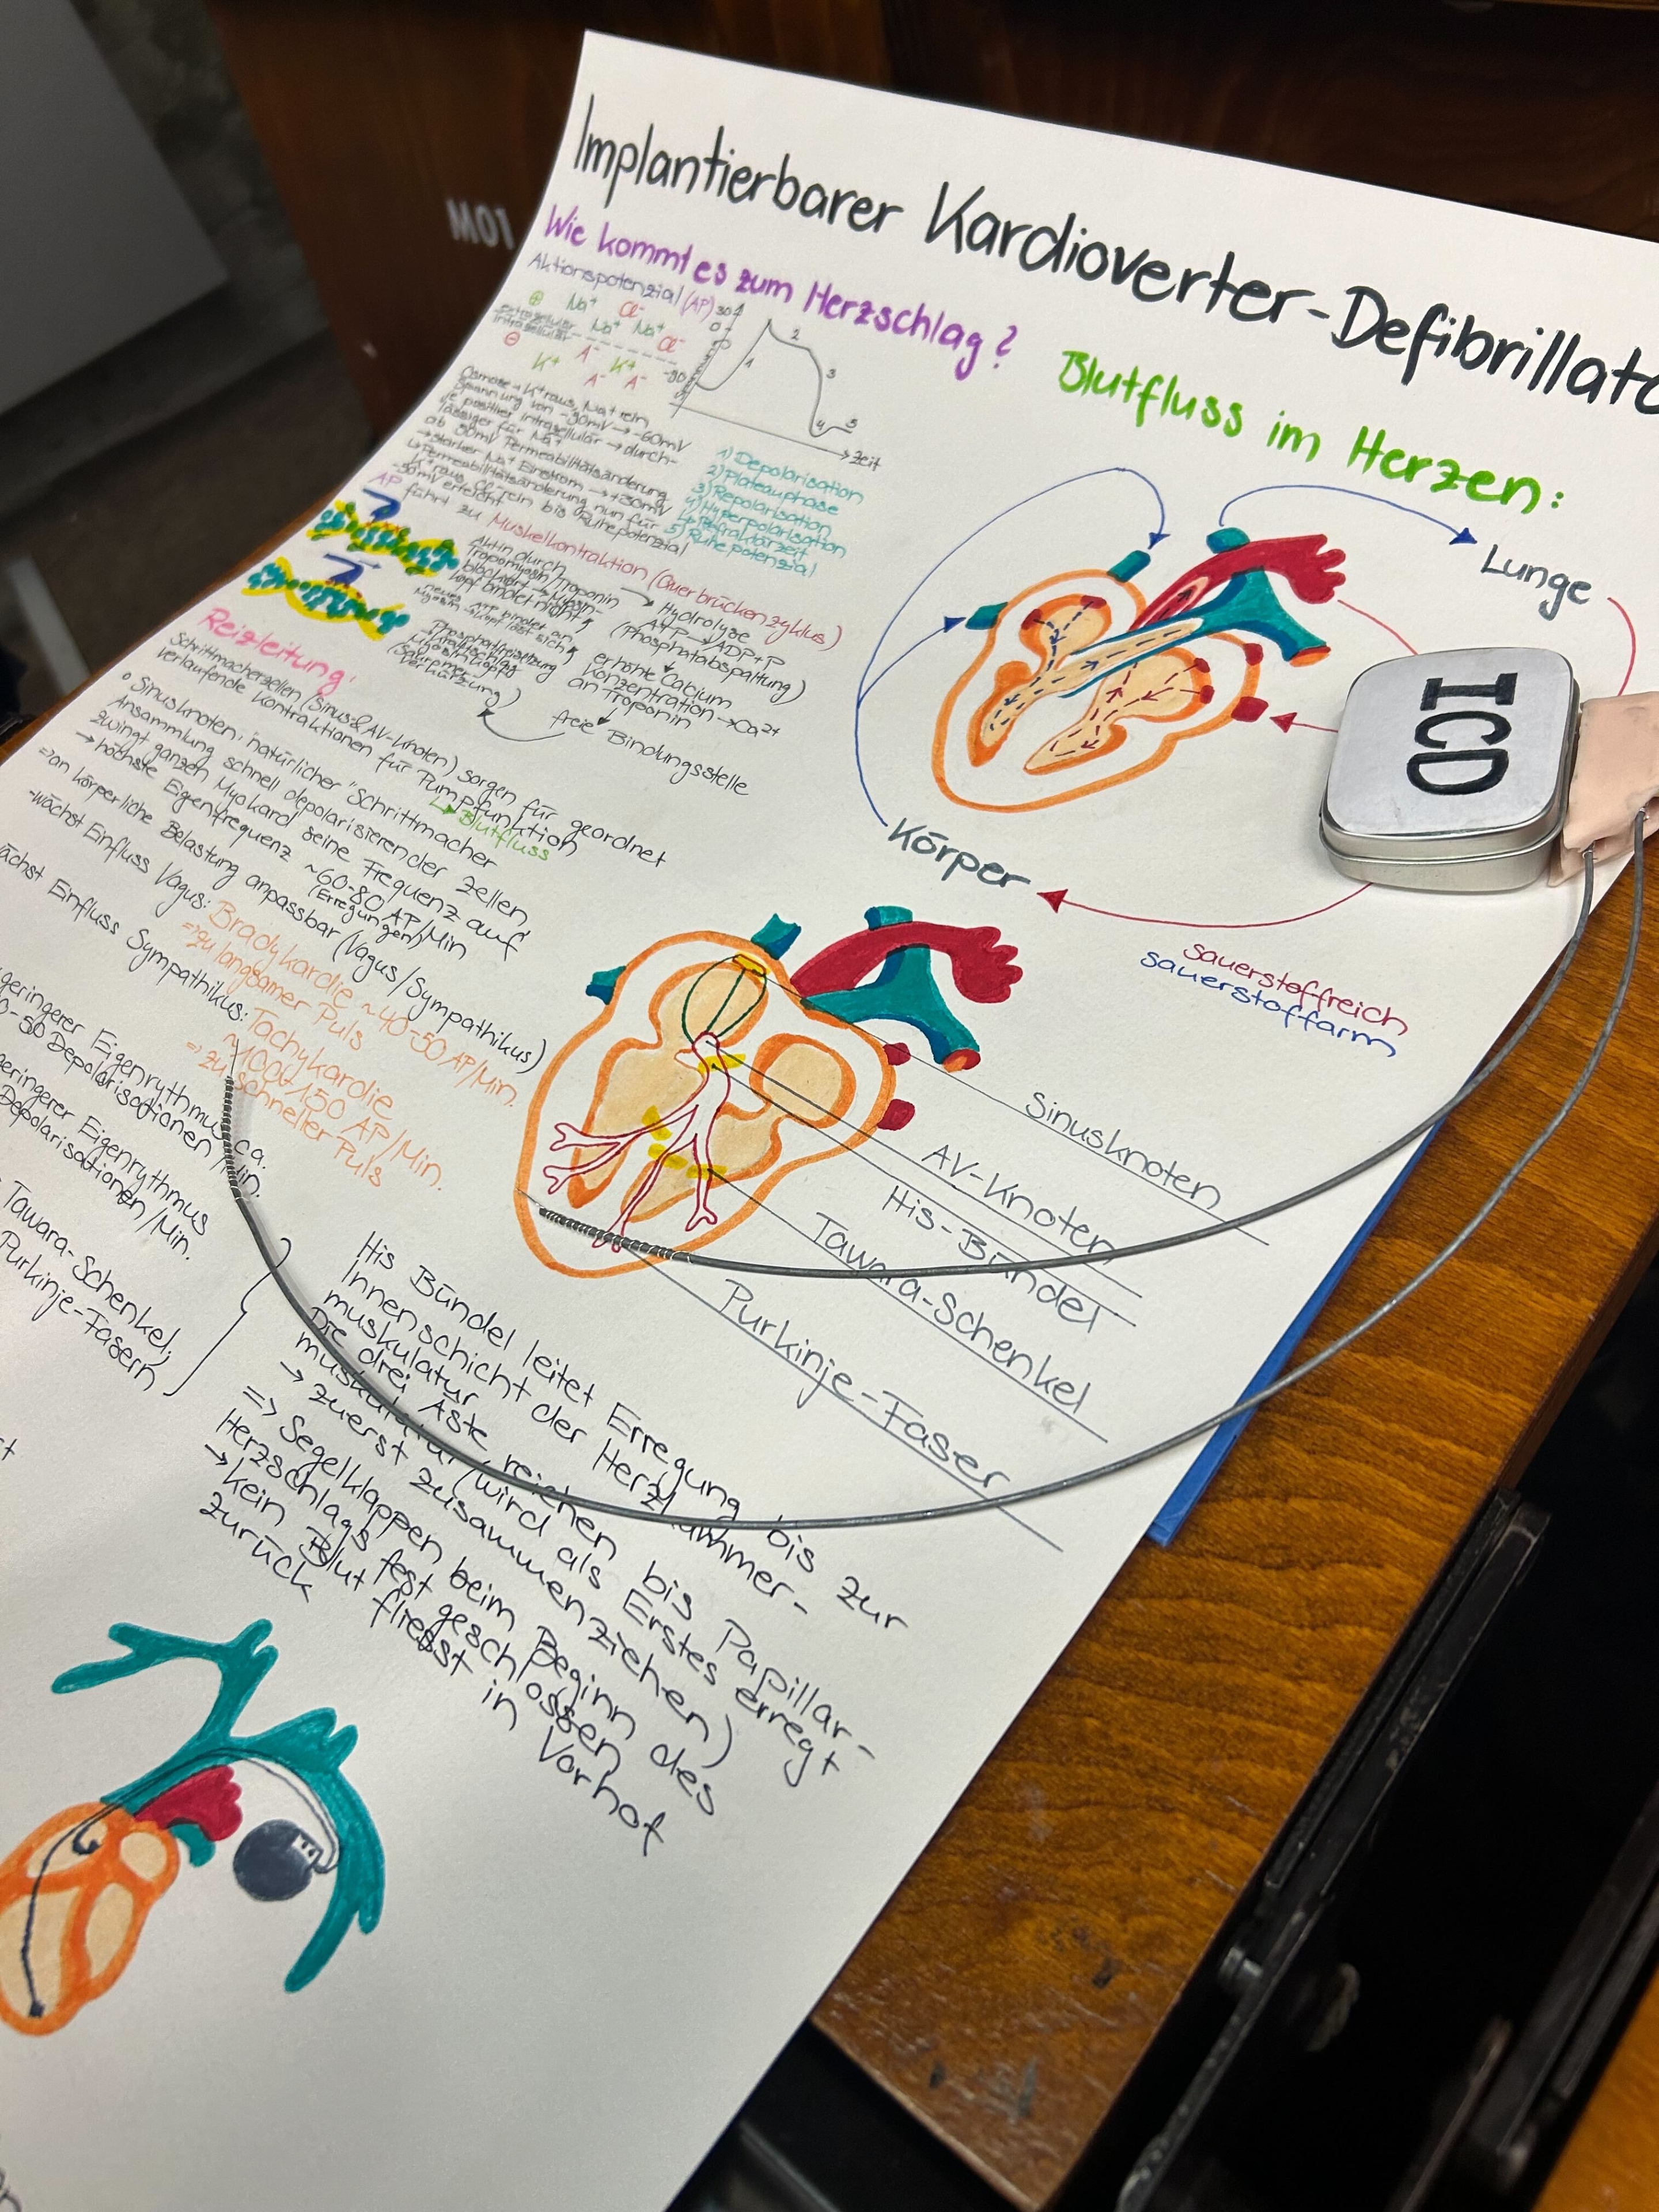 M01
Implantierbarer Kardioverter-Defibrillato
Wie kommt es zum Herzschlag?
Aktionspotenzial (AP)
⊕ Na⁺ Cl⁻
Extrazellulär Na⁺ Na⁺ Cl⁻
Intrazellulär
⊖ K⁺ A⁻ K⁺
A⁻ A⁻
30
0
1 2 3 4 5
→ Zeit
Osmose → K⁺ raus, Na⁺ rein
Spannung von -90mV → -60mV
je positiver intrazellulär → durch-
lässiger für Na⁺
→ starker Na⁺ Einstrom → +30mV
AP führt zu Muskelkontraktion (Querbrückenzyklus)
1) Depolarisation
2) Plateauphase
3) Repolarisation
4) Hyperpolarisation
↳ Refraktärzeit
5) Ruhepotenzial
Aktin durch
Tropomyosin/Troponin
blockiert → Myosin-
kopf bindet nicht
Hydrolyse
ATP → ADP+P
(Phosphatabspaltung)
erhöhte Calcium
Konzentration → Ca²⁺
an Troponin
freie Bindungsstelle
(Sakromer-
verkürzung)
Reizleitung:
Schrittmacherzellen (Sinus-&AV-Knoten) sorgen für geordnet
verlaufende Kontraktionen für Pumpfunktion
↳ Blutfluss
o Sinusknoten: natürlicher "Schrittmacher
Ansammlung schnell depolarisierender Zellen,
zwingt ganzen Myokard seine Frequenz auf
→ höchste Eigenfrequenz ~60-80 AP/Min
(Erregungen)
=> an körperliche Belastung anpassbar (Vagus/Sympathikus)
-wächst Einfluss Vagus: Bradykardie ~40-50 AP/Min.
=> zu langsamer Puls
ächst Einfluss Sympathikus: Tachykardie
~100-150 AP/Min.
=> zu schneller Puls
geringerer Eigenrythmus ca.
0-50 Depolarisationen/Min.
geringerer Eigenrythmus
Depolarisationen/Min.
Tawara-Schenkel,
Purkinje-Fasern
His Bündel leitet Erregung bis zur
Innenschicht der Herzkammer-
muskulatur
Die drei Äste reichen bis Papillar-
muskulatur (wird als Erstes erregt
→ zuerst zusammenziehen)
=> Segelklappen beim Beginn des
Herzschlags fest geschlossen
→ kein Blut fliesst in Vorhof
zurück
Blutfluss im Herzen:
Lunge
Körper
sauerstoffreich
sauerstoffarm
ICD
Sinusknoten
AV-Knoten
His-Bündel
Tawara-Schenkel
Purkinje-Faser